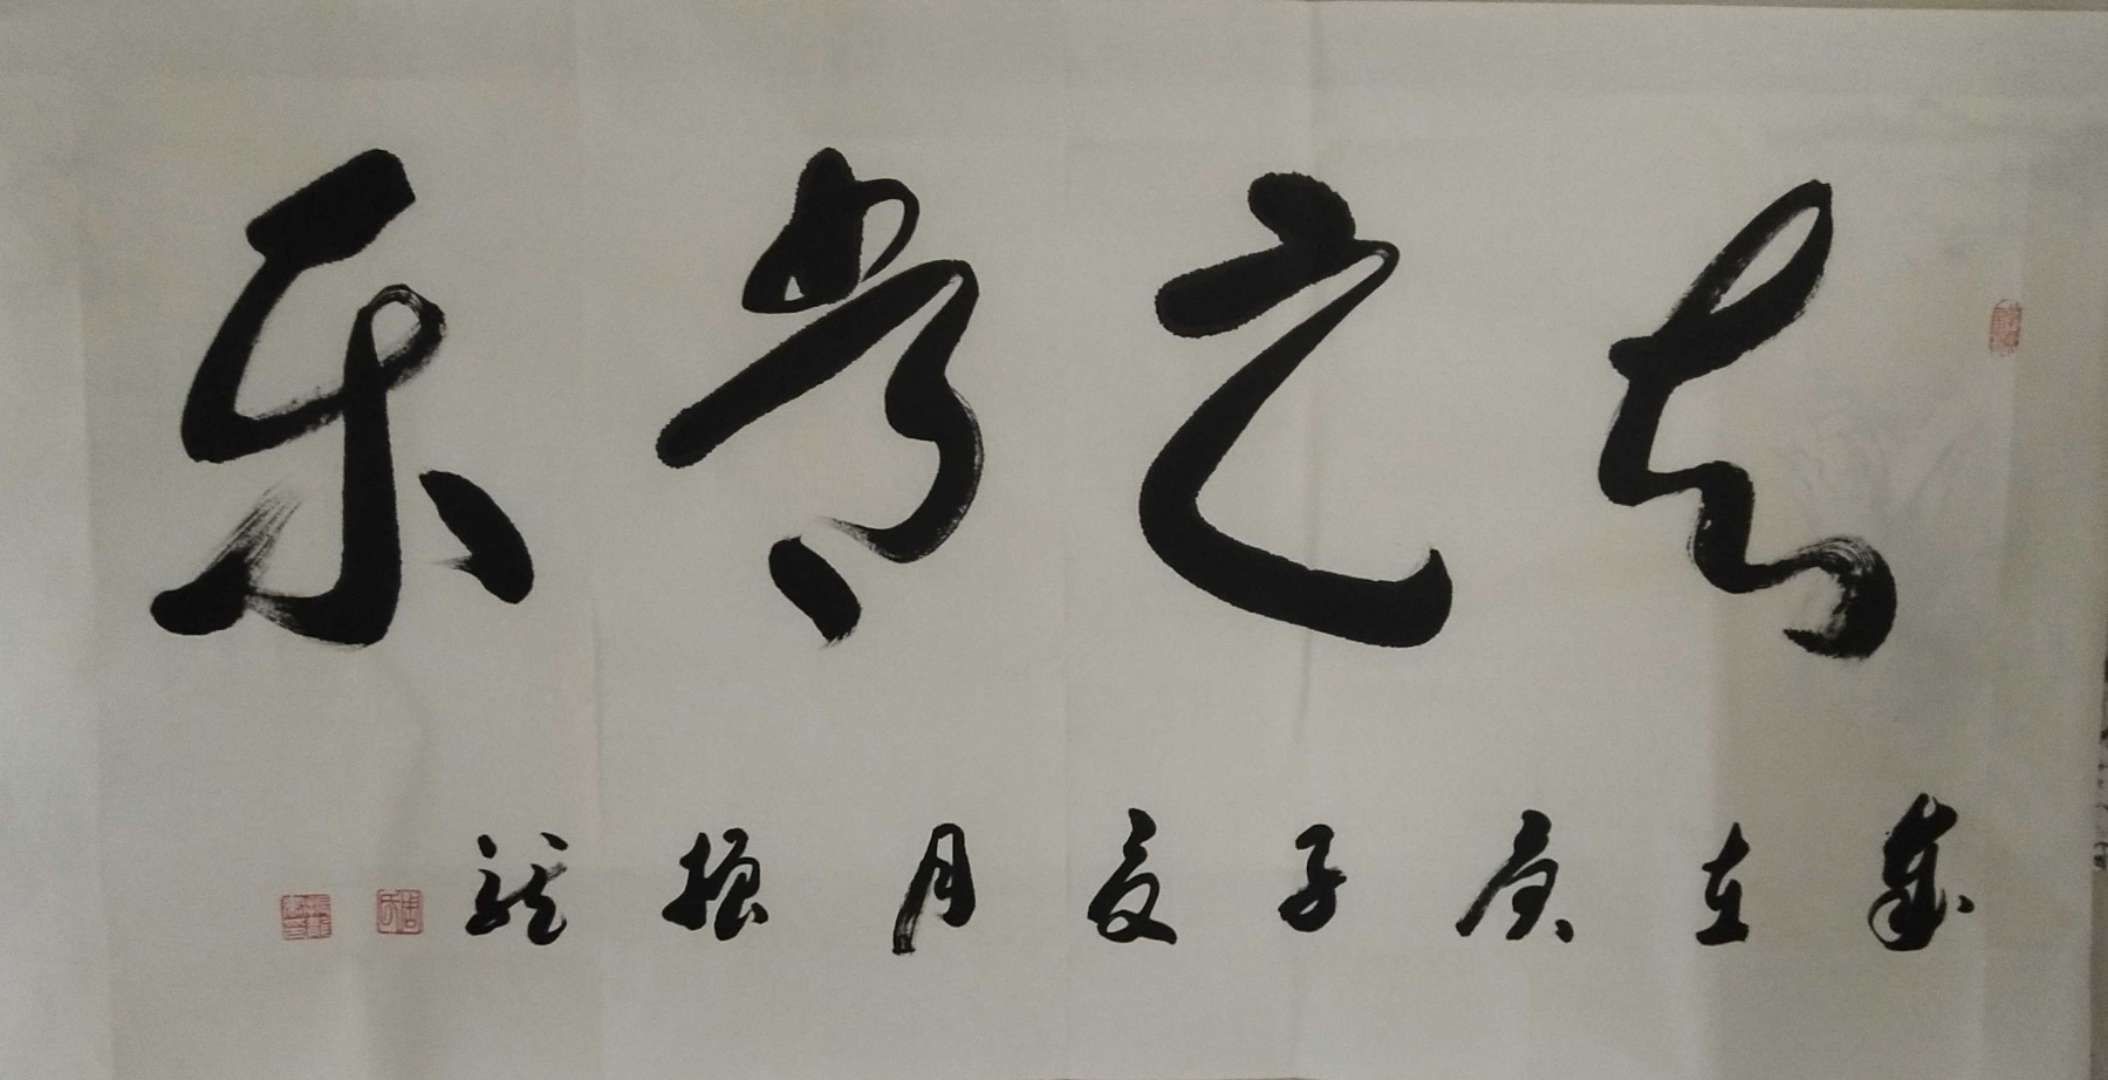 知足常乐
岁在庚子夏月振龙
周氏